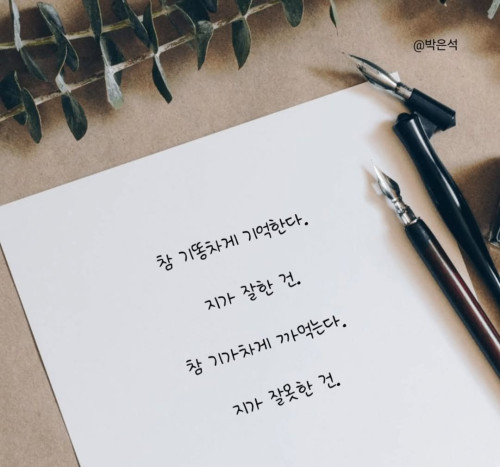 @박은석
참 기똥차게 기억한다.
지가 잘한 건.
참 기가차게 까먹는다.
지가 잘못한 건.